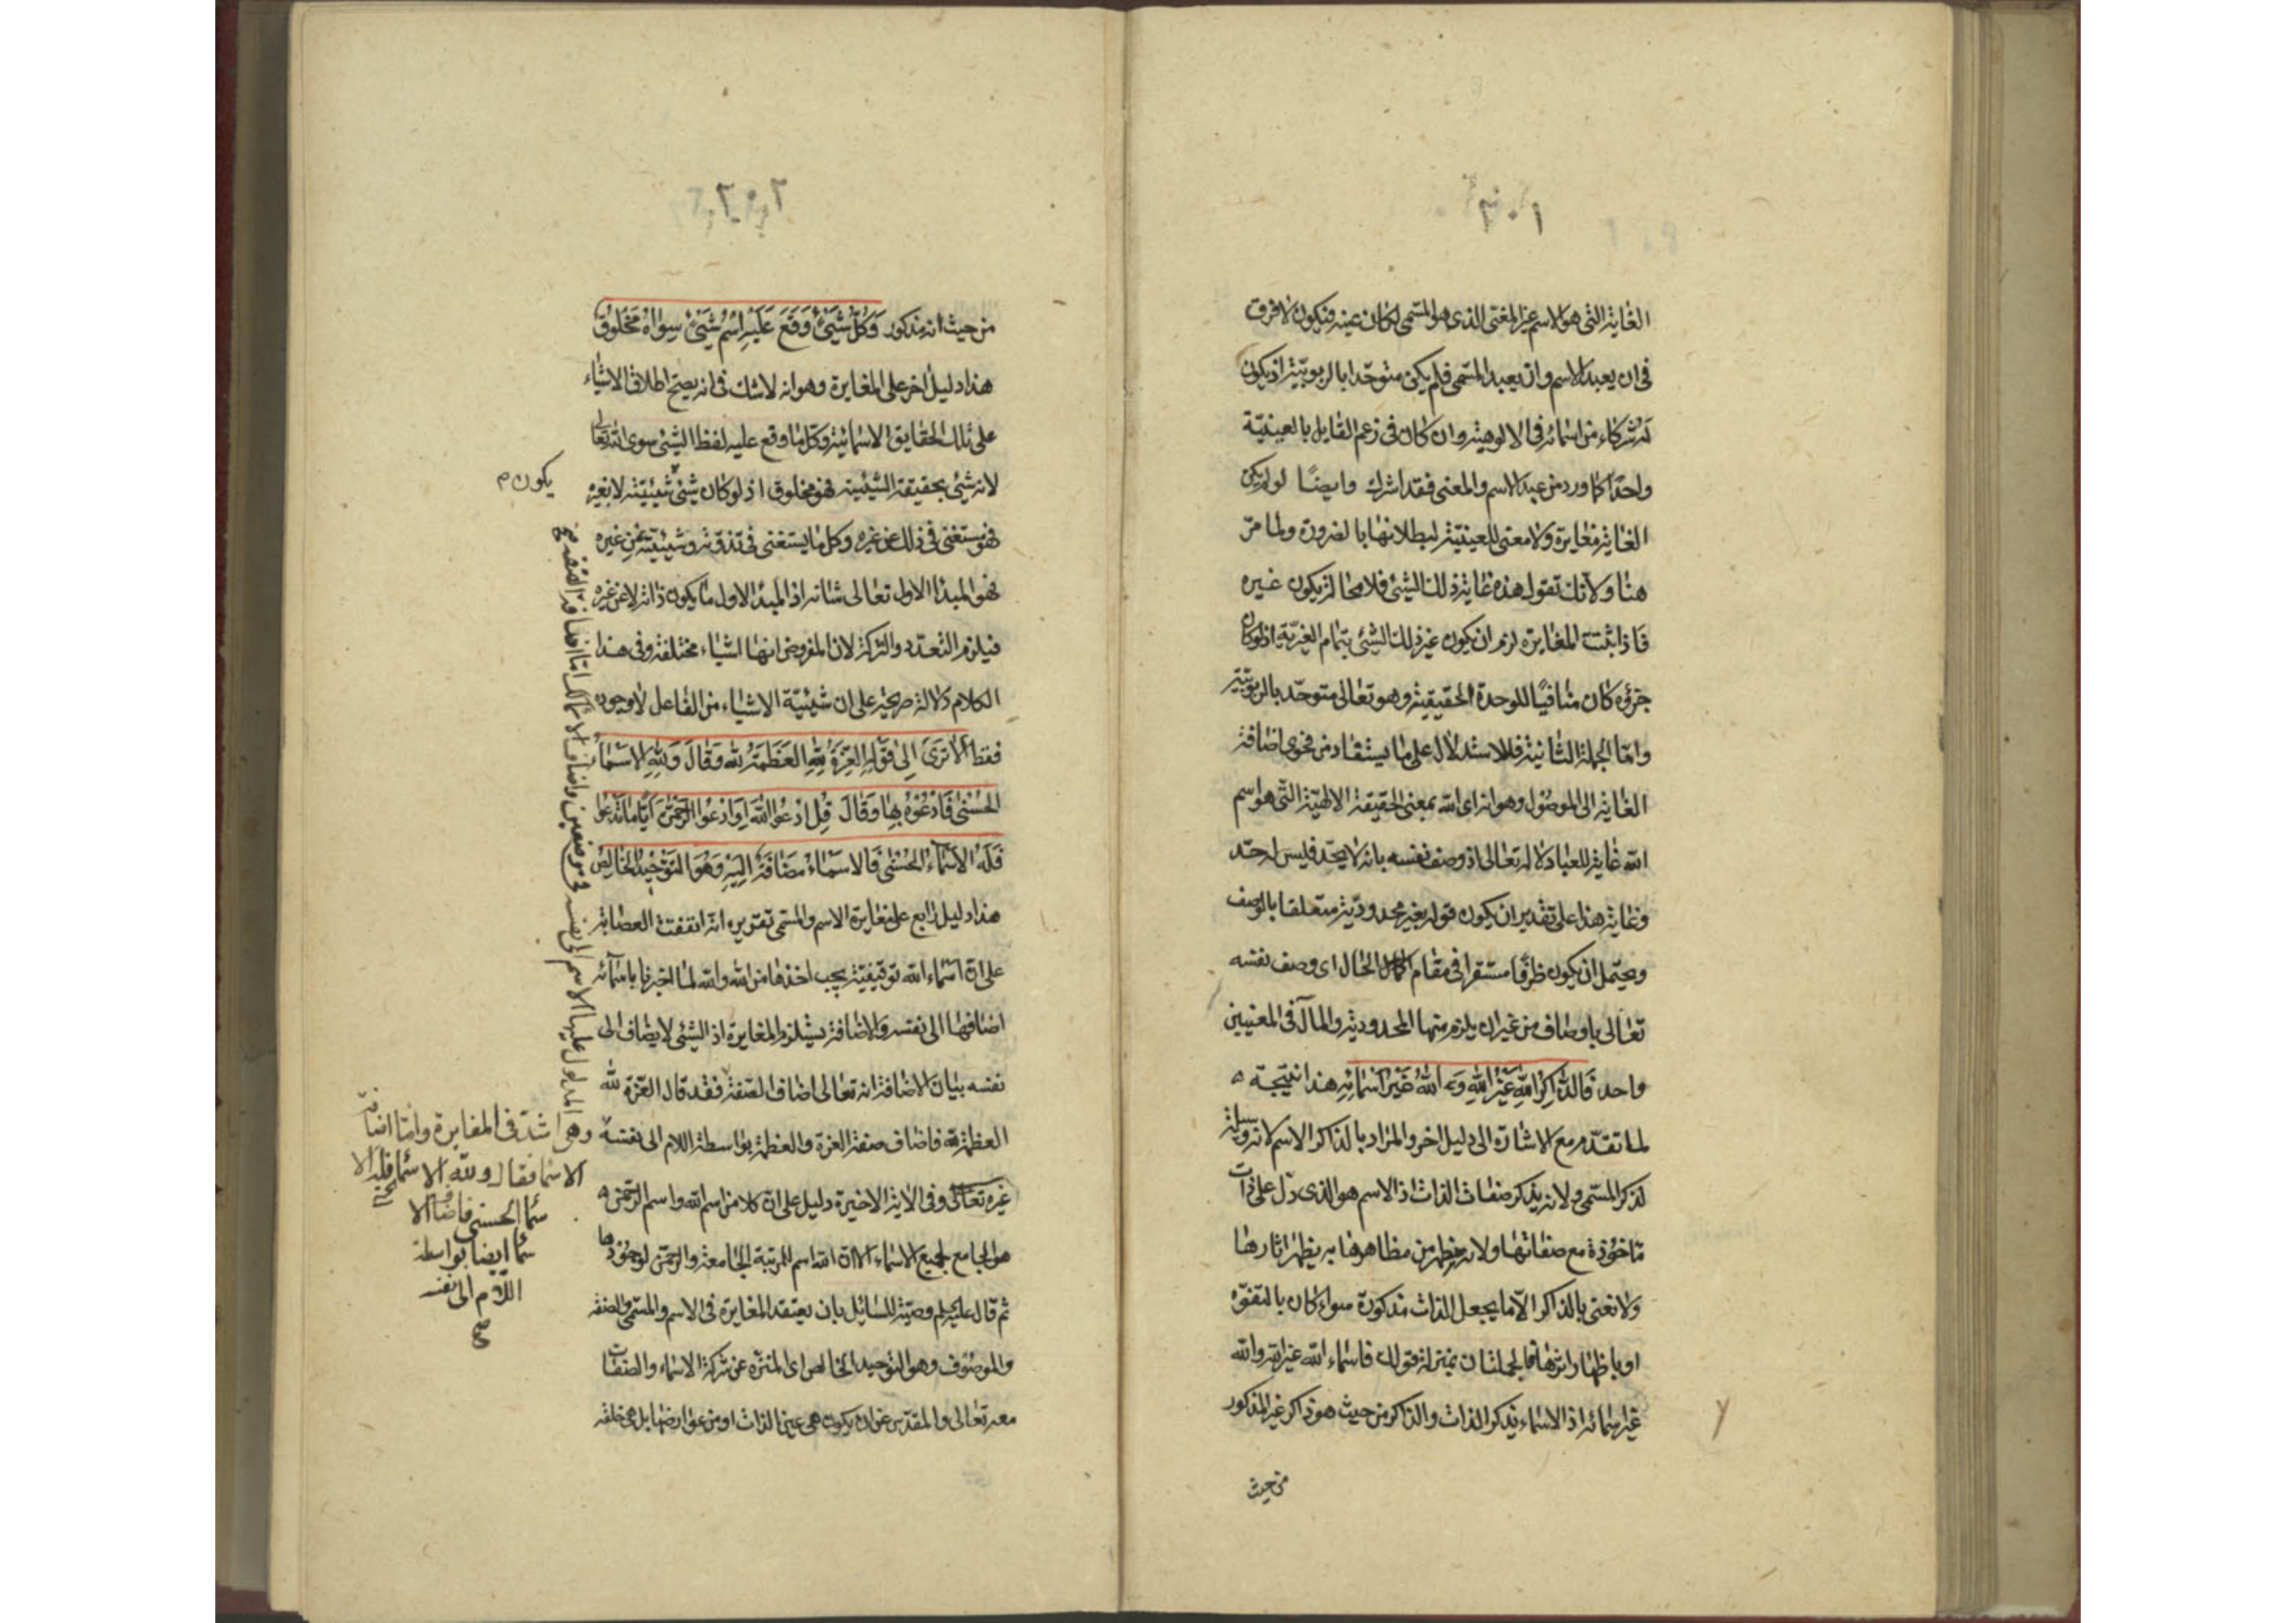 ٢٠١
الغاية التى هو الاسم عن المغنى الذى هو المسمى لكان عينه فيكون لا فرق
فى ان يعبد الاسم وان يعبد المسمى فلم يكن متوحدا بالربوبية اذ يكون
له شركاء من اسمائه فى الالوهية وان كان فى زعم القايل بالعينية
واحدا كما ورد من عبد الاسم والمعنى فقد اشرك وايضا لو لم يكن
الغاية مغايرة ولا معنى للعينية لبطلانها بالضرورة ولما مر
هنا ولانك تقول هذه غاية ذلك الشئ فلا محالة يكون غيره
فاذا ثبتت المغايرة لزم ان يكون غير ذلك الشئ بتمام الغيرية اذ لو كان
جزؤه كان منافيا للوحدة الحقيقية وهو تعالى متوحد بالربوبية
واما الجملة الثانية فللاستدلال على ما يستفاد من فحوى اضافة
الغاية الى الموصول وهو انه اى الله بمعنى الحقيقة الالهية التى هو اسم
الله غاية للعباد لا له تعالى اذ وصف نفسه بانه لا يحد فليس له حد
وغاية هذا على تقدير ان يكون قوله بغير محدودية متعلقا بالوصف
ويحتمل ان يكون ظرفا مستقرا فى مقام الحال اى وصف نفسه
تعالى باوصاف من غير ان يلزم منها المحدودية والمآل فى المعنيين
واحد فَالذَّاكِرُ اللهَ غَيْرُ اللهِ وَ اللهُ غَيْرُ اَسْمَائِهِ هذا نتيجة
لما تقدم مع الاشارة الى دليل اخر والمراد بالذاكر الاسم لانه وسيلة
لذكر المسمى ولانه يذكر صفات الذات اذ الاسم هو الذى دل على ذات
مأخوذة مع صفاتها ولانه مظهر من مظاهرها به يظهر اثارها
ولا نعنى بالذاكر الا ما يجعل الذات مذكورة سواء كان بالتفوه
او باظهار اثرها فالجملتان بمنزلة قولك فاسماء الله غير الله والله
غير اسمائه اذ الاسماء يذكر الذات والذاكر من حيث هو ذاكر غير المذكور
من حيث
٢٠٢
من حيث انه مذكور وَكُلُّ شَيْئٍ وَقَعَ عَلَيْهِ اِسْمُ شَيْئٍ سِوَاهُ مَخْلُوقٌ
هذا دليل اخر على المغايرة وهو انه لا شك فى انه يصح اطلاق الاشياء
على تلك الحقايق الاسمائية وكل ما وقع عليه لفظ الشئ سوى الله تعالى
لانه شئ بحقيقة الشيئية فهو مخلوق اذ لو كان شئ شيئيته لا بغيره
يكون م
فهو مستغنى فى ذلك عن غيره وكل ما يستغنى فى تذوّته وشيئيته عن غيره
فهو المبدا الاول تعالى شانه اذ المبدا الاول ما يكون ذاته لا عن غيره
فيلزم التعدد والتركة لان المفروض انها اشياء مختلفة وفى هذا
الكلام دلالة صريحة على ان شيئية الاشياء من الفاعل لا وجوده
فقط اَلا تَرَى اِلى قَوْلِهِ الْعِزَّةُ لِلّهِ الْعَظَمَةُ لِلّهِ وَقَالَ وَلِلّهِ الاَسْمَاءُ
الْحُسْنى فَادْعُوهُ بِهَا وَقَالَ قُلِ ادْعُوا اللهَ اَوِ ادْعُوا الرَّحْمنَ اَيًّا مَا تَدْعُوا
فَلَهُ الاَسْمَاءُ الْحُسْنى فَالاَسْمَاءُ مُضَافَةٌ اِلَيْهِ وَهُوَ التَّوْحِيدُ الْخَالِصُ
هذا دليل رابع على مغايرة الاسم والمسمى تقريره انه اتفقت العصابة
على ان اسماء الله توقيفية يجب اخذها من الله والله لما اخبرنا باسمائه
اضافها الى نفسه والاضافة يستلزم المغايرة اذ الشئ لا يضاف الى
نفسه بيان الاضافة انه تعالى اضاف الصفة فقد قال العزة لله
العظمة لله فاضاف صفة العزة والعظمة بواسطة اللام الى نفسه
غيره تعالى وفى الاية الاخيرة دليل على ان كلا من اسم الله واسم الرحمن
هو الجامع لجميع الاسماء الا ان الله اسم المرتبة الجامعة والرحمن لوجودها
ثم قال عليلم وصية للسائل بان يعتقد المغايرة فى الاسم والمسمى والصفة
والموصوف وهو التوحيد الخالص اى المنزه عن شركة الاسماء والصفات
معه تعالى والمقدس عن ان يكون هى عين الذات او من عوارضها بل هى خلقه
وهى اشد فى المغايرة واما اضافة
الاسما فقال ولله الاسماء فله الا
سماء الحسنى فاضاف الا
سماء ايضا بواسطة
اللام الى نفسه
صح